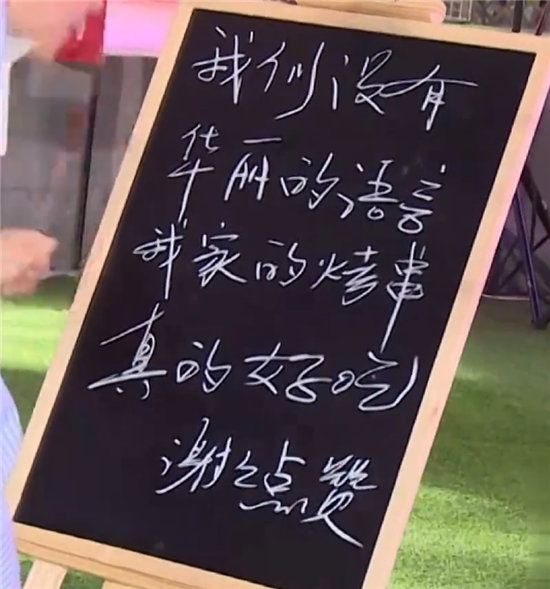 我们没有
华丽的语言
我家的烤串
真的好吃
谢谢点赞